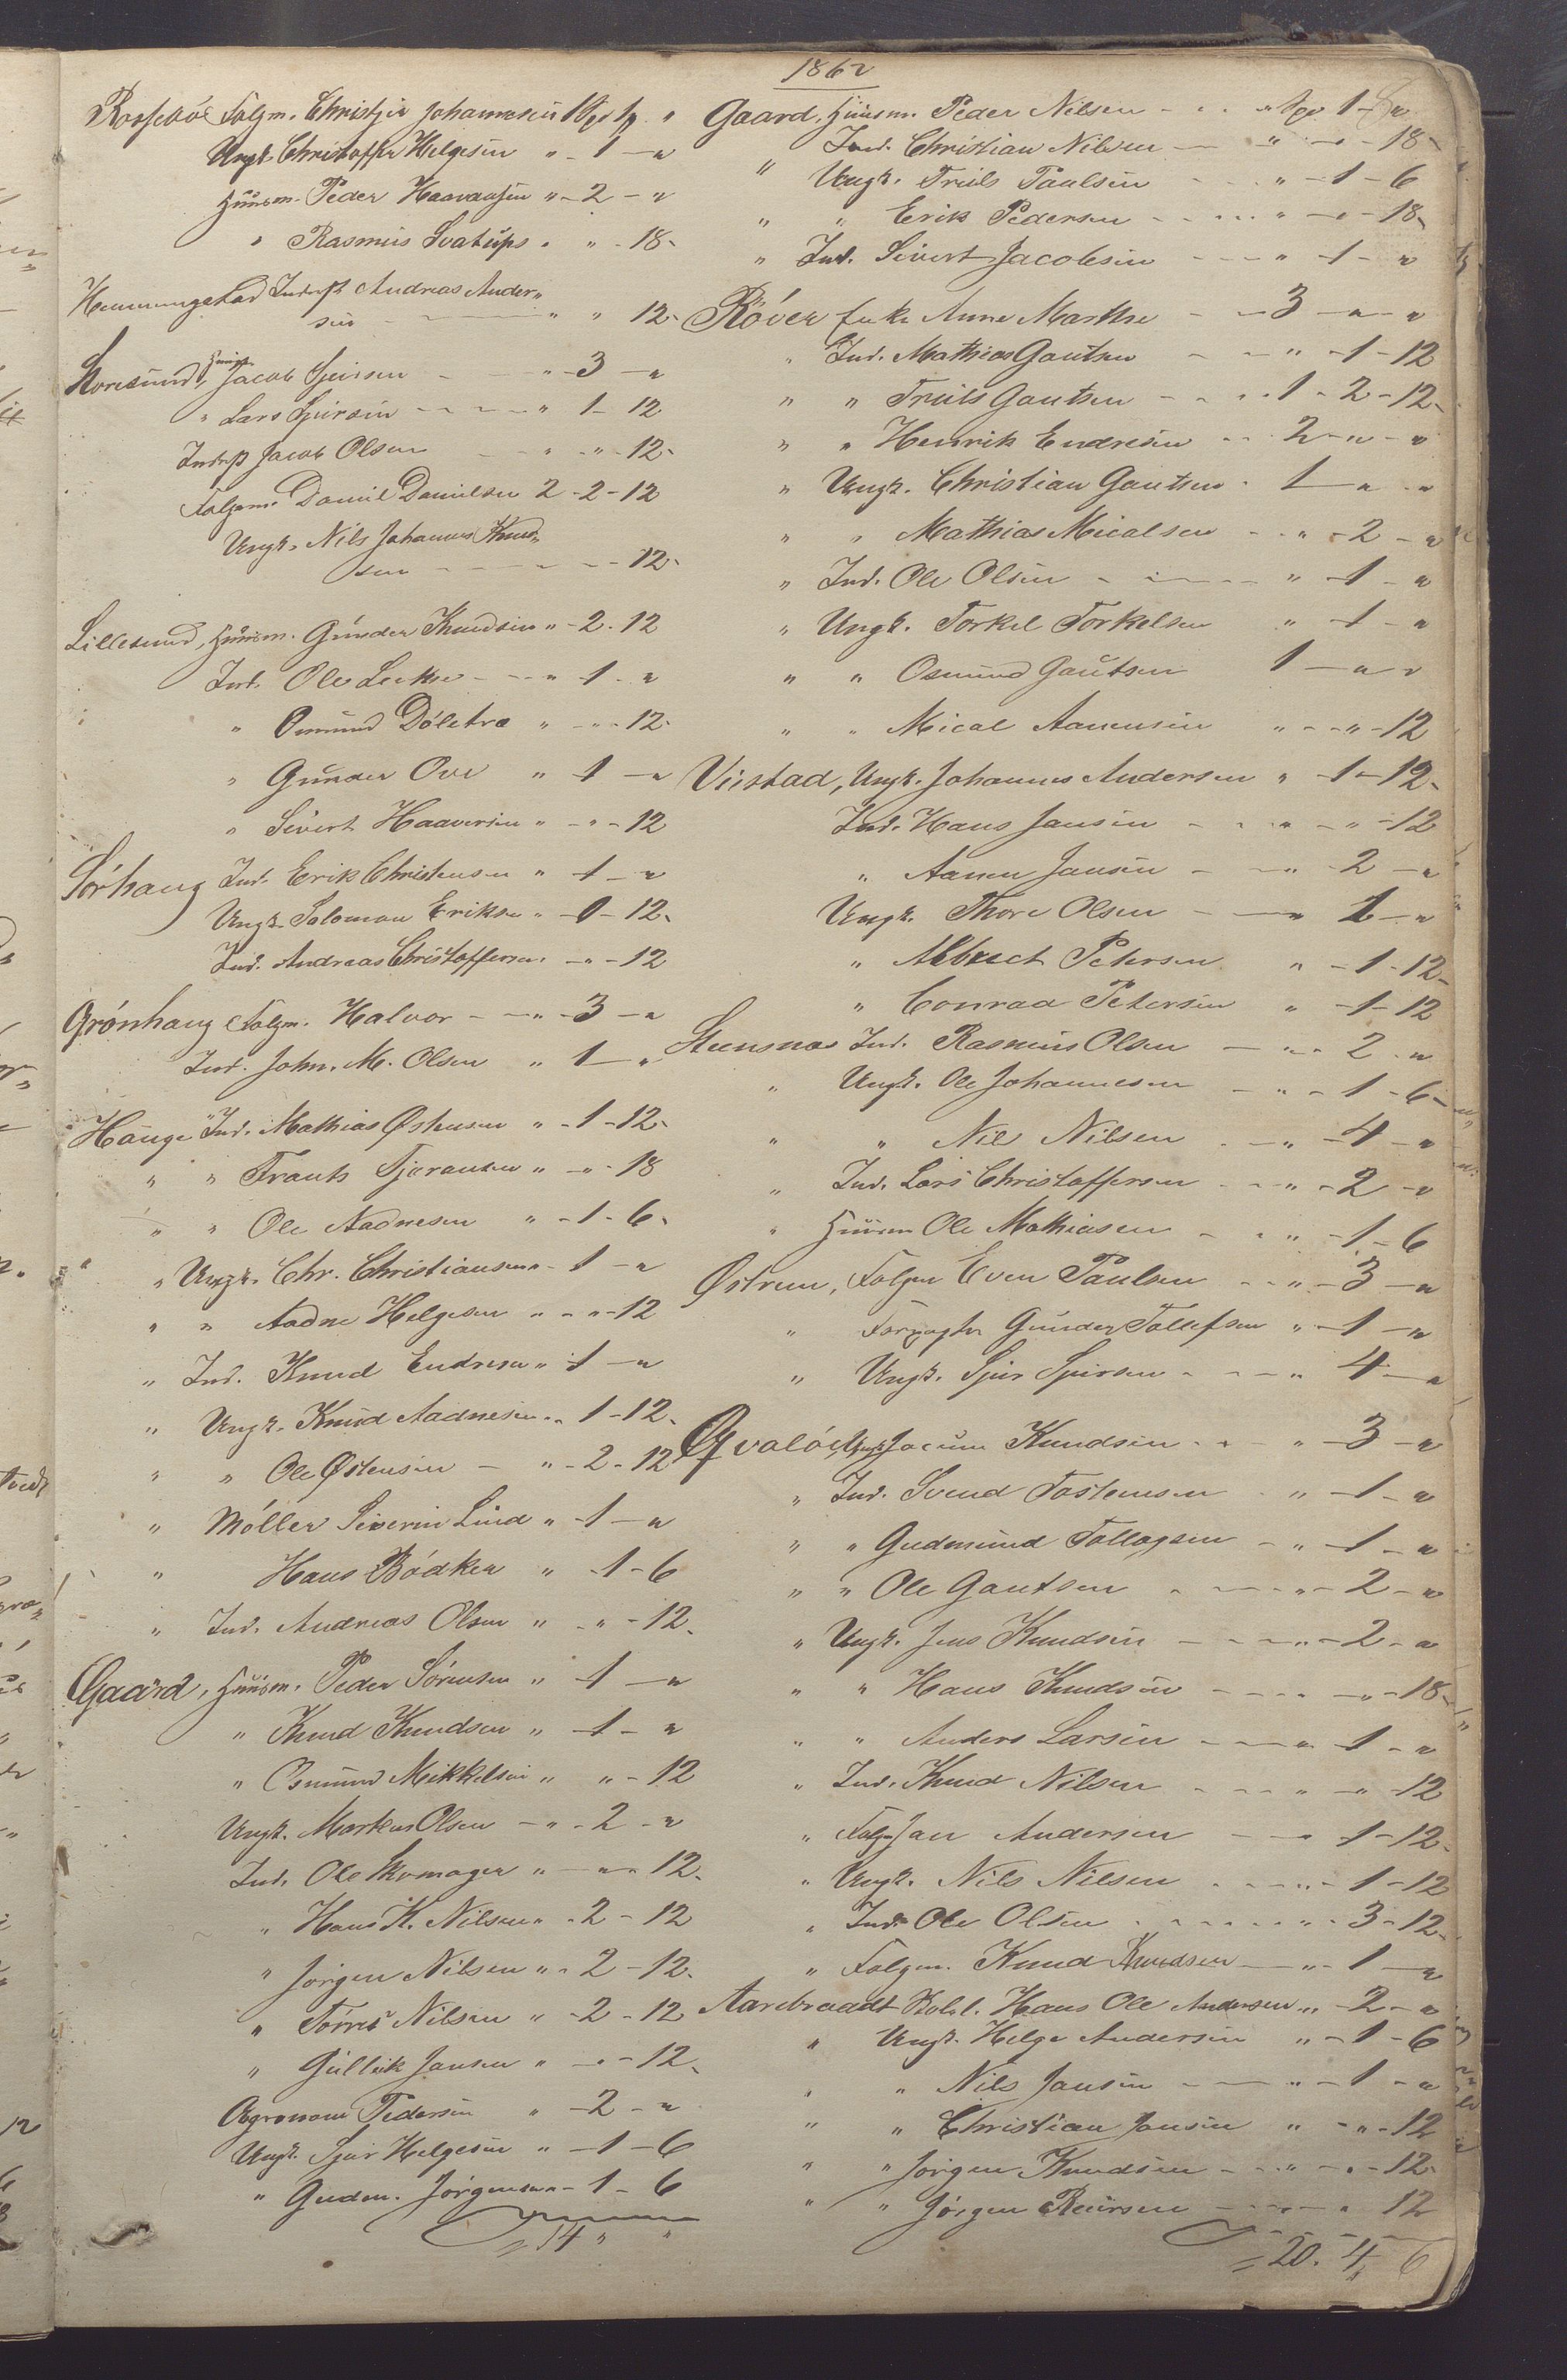 1862
Rossebøe Folgm. Christjen Johannesen 1
Ungk. Christoffer Helgesen " - 1 - "
Huusm. Peder Haavaasen " - 2 - "
" Rasmus " " - 18 -
Indrst Andreas Ander-
sen " " 12 -
Noresund, Jacob Sjursen - " - 3 - "
" Lars Sjursen - - - - " 1 - 12
Indrst Jacob Olsen - " - " - 12 -
Folgem. Daniel Danielsen 2 - 2 - 12
Ungk. Nils Johannes Knud-
sen - - - - 12 -
Lillesund, Huusm. Gunder Knudsen " - 2 - 12
Ind. Ole - - - " 1 - "
" Omund " - " - 12
" Gunder Ove " - 1 - "
" Sivert Haaversen " - " - 12
Sörhaug Ind. Erik Christensen " - 1 - "
Ungk. Salomon Eriksen " - 0 - 12 -
Ind. Andreas Christoffersen - " - 12
Grönhaug Folgm. Halvor - - " - 3 - "
Ind. John. M. Olsen " 1 - "
Hauge Ind. Mathias Østensen " - 1 - 12 -
" " Frants Tjeransen " - " - 18
" " Ole Aadnesen " - 1 - 6 -
" Ungk. Chr. Christiansen " - 1 - "
" " Aadne Helgesen " - " - 12
" Ind. Knud Endresen " 1 - "
" Ungk. Knud Aadnesen " - 1 - 12 -
" " Ole Østensen - " - 2 - 12
" Möller Severin Lind " - 1 - "
" Hans Bödker " - 1 - 6
" Ind. Andreas Olsen " - " - 12 -
Gaard, Huusm. Peder Sörensen " - 1 - "
" Knud Knudsen " - 1 - "
" Osmund Mikkelsen " " - 12
Ungk. Markus Olsen - " - 2 - "
Ind. Ole Skomager " - " - 12 -
" Hans K. Nilsen " - 2 - 12
" Jörgen Nilsen " - 2 - 12 -
" Törres Nilsen " - 2 - 12
" Gullik Jansen " - " - 12 -
Agronom Pedersen " - 2 - "
Ungk. Sjur Helgesen " - 1 - 6
" Gudm. Jörgensen " - 1 - 6
= 14 " "
Gaard, Huusm. Peder Nilsen - - " 1 - "
" Ind. Christian Nilsen - " - " - 18 -
Ungk. Truls Paulsen - - " - 1 - 6
" " Erik Pedersen - - - " - " - 18 -
" Ind. Sivert Jacobsen - - - " 1 - "
Röver Enke Anne Marthe - - 3 - " - "
" Ind. Mathias Gautsen - - " - 1 - 12
" " Truls Gautsen - - - 1 - 2 - 12 -
" " Henrik Endresen - - 2 - " - "
" Ungk. Christian Gautsen - 1 - " - "
" " Mathias Micalsen - - " - 2 - "
" Ind. Ole Olsen - - - - " - 1 - "
" Ungk. Torkel Torkelsen " - 1 - "
" " Osmund Gautsen 1 - " - "
" " Mical Aanensen " - - " - 12
Viestad, Ungk. Johannes Andersen " - 1 - 12 -
Ind. Hans Jansen - - " - " - 12
" Aanen Jansen - - " - 2 - "
Ungk. Thore Olsen - - " 1 - "
" Albrect Petersen " - 1 - 12 -
" Conrad Petersen " - 1 - 12
Steensnæs Ind. Rasmus Olsen - " - 2 - "
" Ungk. Ole Johannesen - " - 1 - 6 -
" " Nils Nilsen - - " - 4 - "
" Ind. Lars Christoffersen - - " - 2 - "
" Huusm Ole Mathiasen - - " - 1 - 6
Østrem, Folgm Even Paulsen - - " - 3 - "
" Gunder Tollefsen " - 1 - "
" Ungk. Sjur Sjursen - - - " 4 - "
Qvalöe, Ungk. Jacum Knudsen - - - " - 3 - "
" Ind. Svend Tostensen - " - 1 - "
" " Gudmund Tollagsen - " - 1 - "
" " Ole Gautsen - - - " - 2 - "
" Ungk. Jens Knudsen - - - " - 2 - "
" " Hans Knudsen - - - - " - 18 -
" " Anders Larsen - - - " 1 - "
" Ind. Knud Nilsen - - - " - " - 12
" Folgm Jan Andersen - - " 1 - 12 -
" Ungk. Nils Nilsen - - - " - 1 - 12
" Ind. Ole Olsen - - - - - " - 3 - 12 -
" Folgem. Knud Knudsen - " - 1 - "
Aarebraadt Hans Ole Andersen " - 2 - "
" Ungk. Helge Andersen " - 1 - 6
" " Nils Jansen - - " - 1 - "
" " Christian Jansen " - " - 12
" " Jörgen Knudsen - - " - " - 12 -
" " Jörgen - - - " 12
= 20. 4, 6